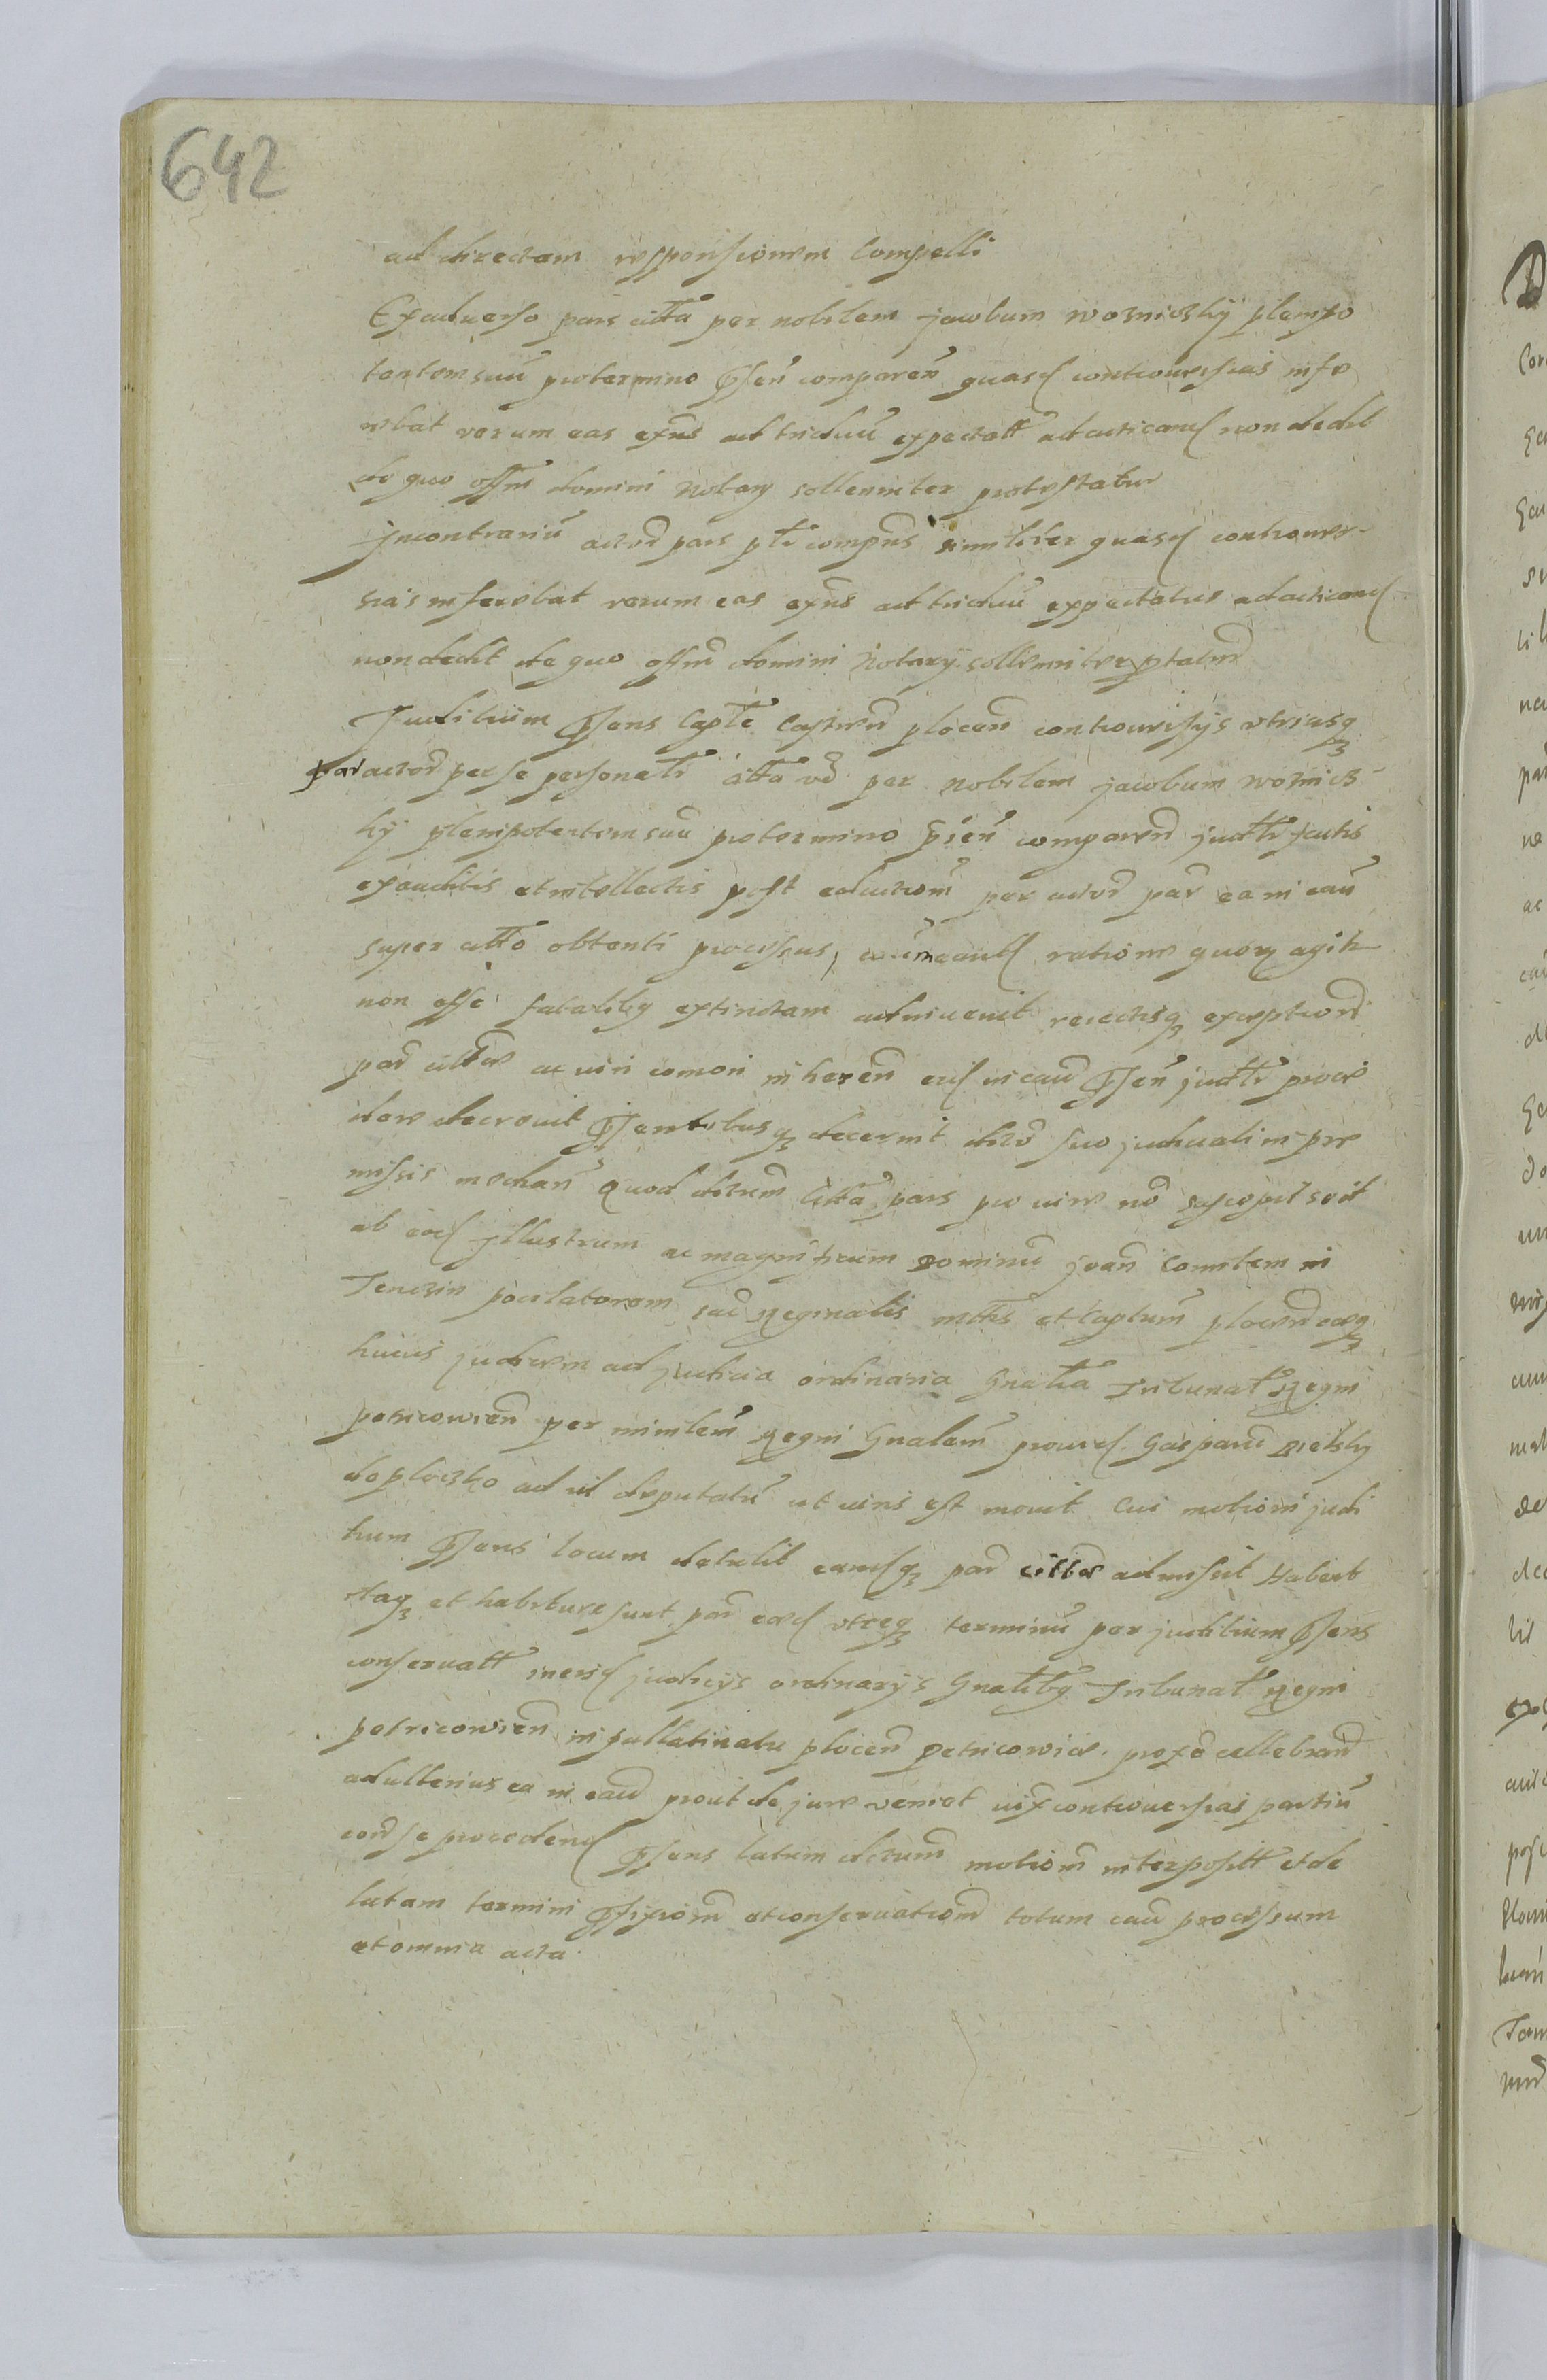 642
ad directam responsionem Compelli
Exaduerso pars citta per nobilem jacobum wozniczky plenipo
tentem suu pro termino psen comparen quasd controuersias infe
rebat verum eas exns ad triduu expectatt ad acticand non dedit
de quo offm domini Notary sollenniter protestatur
Jncontrariu actor pars ptr compns similiter quasd controuer-
sias inferebat verum eas exns ad triduu expectatus ad acticand
non dedit de quo offm domini Notary sollenniter ptatur
Juditium psens Capte Castren plocen controuersijs vtriusq
par actor per se personatr citta vo per nobilem jacobum woznicz-
ky plenipotentem suu pro termino psen comparen judttr factis
exauditis et intellectis post eductiom per actor par ea in cau
super citto obtenti processus, ratione quor agitr
non esse extinctam adinuenit reiectisq exception
par citte ac viri inheren eid in cau psen judttr proce
dere decreuit psentibusq decernit decto suo judicali in pre
missis median Quod dectum Citta pars pro vire no suscepit sed
ab eod Jllustrem ac magnificum Dominu Joan Comitem in
Tenczin pocilatorem sac Reginalis mttis et Captum plocen eosq
huius judicem ad judicia ordinaria Gnalia Tribunat Regni
petricowien per ministem Regni Gnalem prouid Gasparu
de ploczko ad id deputatu ut vires est mouit Cui motioni judi
tium psens locum detulit eamdq par citte admisit Habent
itaq et habiture sunt par eaed vtreq terminu per juditium psens
conseruatt in eisd judicijs ordinarijs Gnalibq Tribunat Regni
petricowien in pallatinatu plocen petricowie proxe cellebrand
ad ulterius ea in cau prout de jure veniet iux controuersias partiu
coram se procedend psens latum dectum motiom interpositt et de
latam termini pfixiom et conseruatiom totum cau processum
et omnia acta